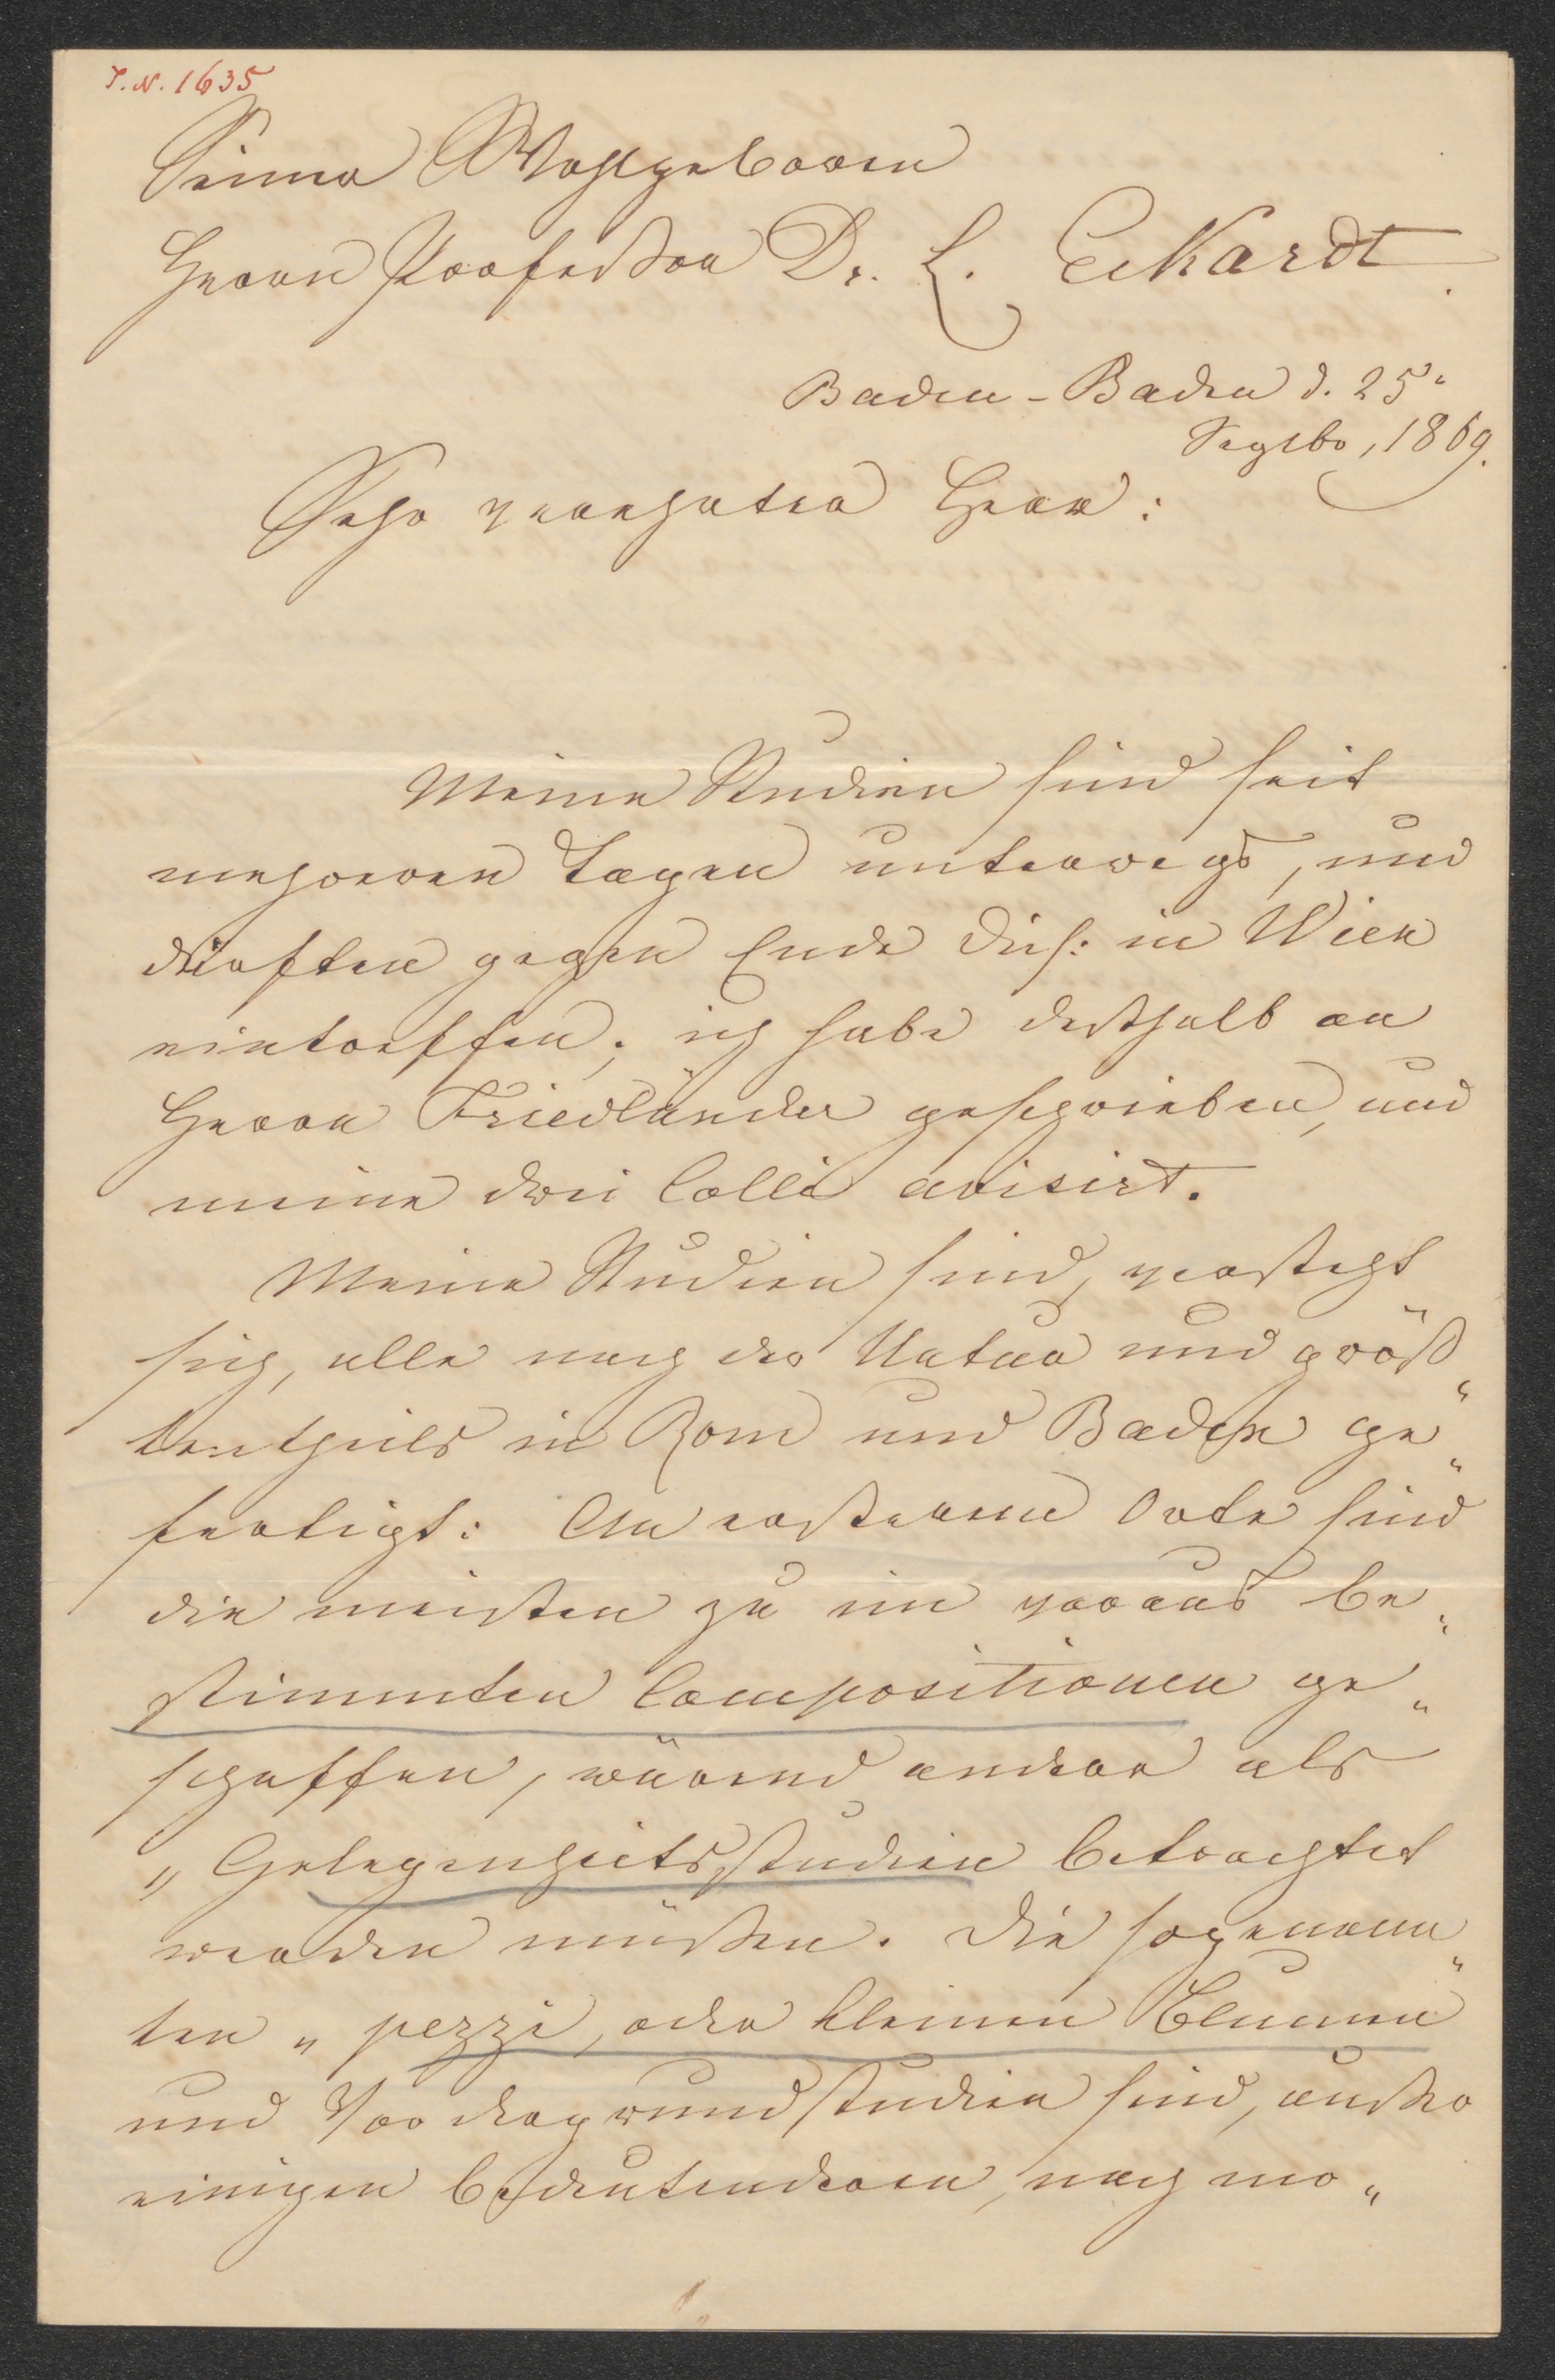 I. N. 1635
Seiner Wohlgeboren
Herrn Professor Dr. L. Eckardt.
Baden-Baden d. 25"
Septbr, 1869.
Sehr verehrter Herr:
Meine Studien sind seit
mehreren Tagen unterwegs, und
dürften gegen Ende dieß: in Wien
eintreffen; ich habe desshalb an
Herrn Friedländer geschrieben, und
meine drei Colli avisirt.
Meine Studien sind, versteht
sich, alle nach der Natur und größ„
tentheils in Rom und Baden ge„
fertigt: An ersterem Orte sind
die meisten zu im voraus be„
stimmten Compositionen ge„
schaffen, wärend andere als
„Gelegenheitsstudien betrachtet
werden müssen. Die sogenann„
ten „pezzi, oder kleinen Blumen
und Vordergrundstudien sind, ausser
einigen bedeutenderen, nach mo„